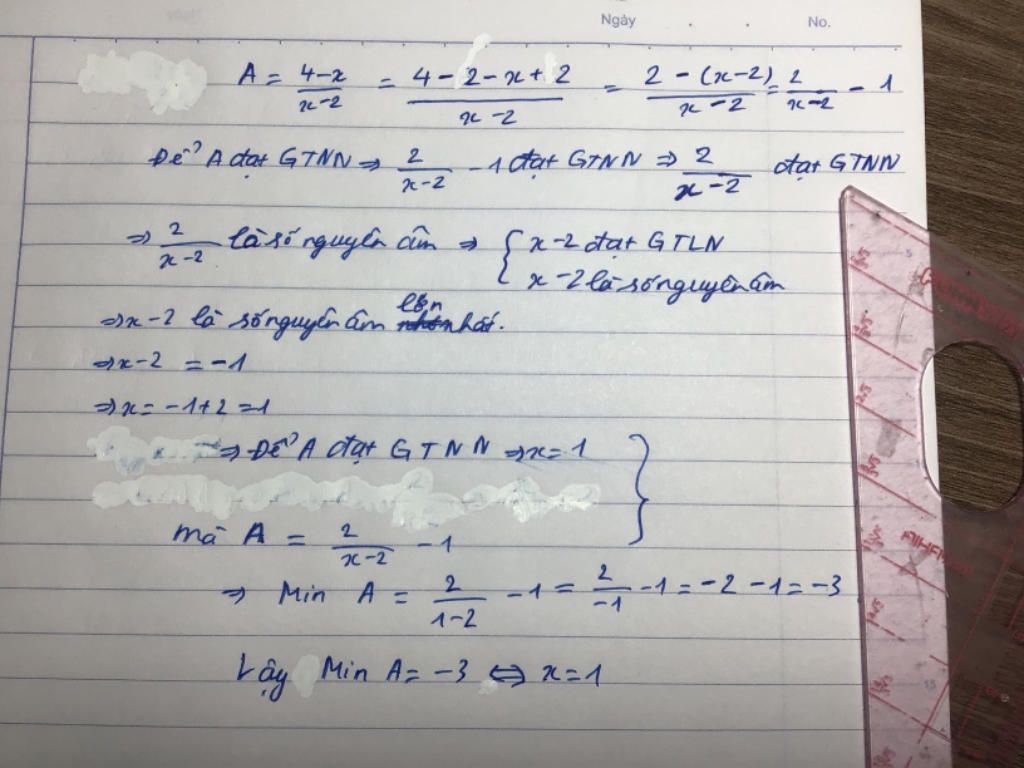 Ngày . . No.
A = \frac{4-x}{x-2} = \frac{4-2-x+2}{x-2} = \frac{2-(x-2)}{x-2} = \frac{2}{x-2} - 1
Để A đạt GTNN ⇒ \frac{2}{x-2} - 1 đạt GTNN ⇒ \frac{2}{x-2} đạt GTNN
⇒ \frac{2}{x-2} là số nguyên âm ⇒ { x-2 đạt GTLN
x-2 là số nguyên âm
⇒ x-2 là số nguyên âm lớn nhất.
⇒ x-2 = -1
⇒ x = -1+2 = 1
⇒ Để A đạt GTNN ⇒ x = 1 }
mà A = \frac{2}{x-2} - 1
⇒ Min A = \frac{2}{1-2} - 1 = \frac{2}{-1} - 1 = -2 - 1 = -3
Vậy Min A = -3 ⇔ x = 1